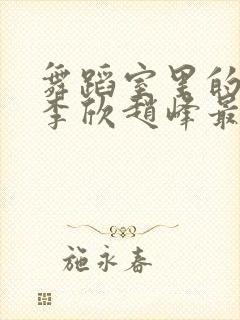 舞蹈室里的
李欣赵峰最
施永春